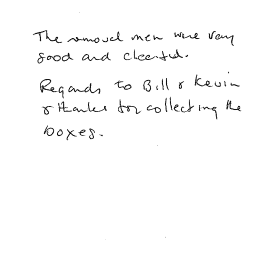 The removal men were very
good and cheerful.
Regards to Bill & Kevin
& thanks for collecting the
boxes.